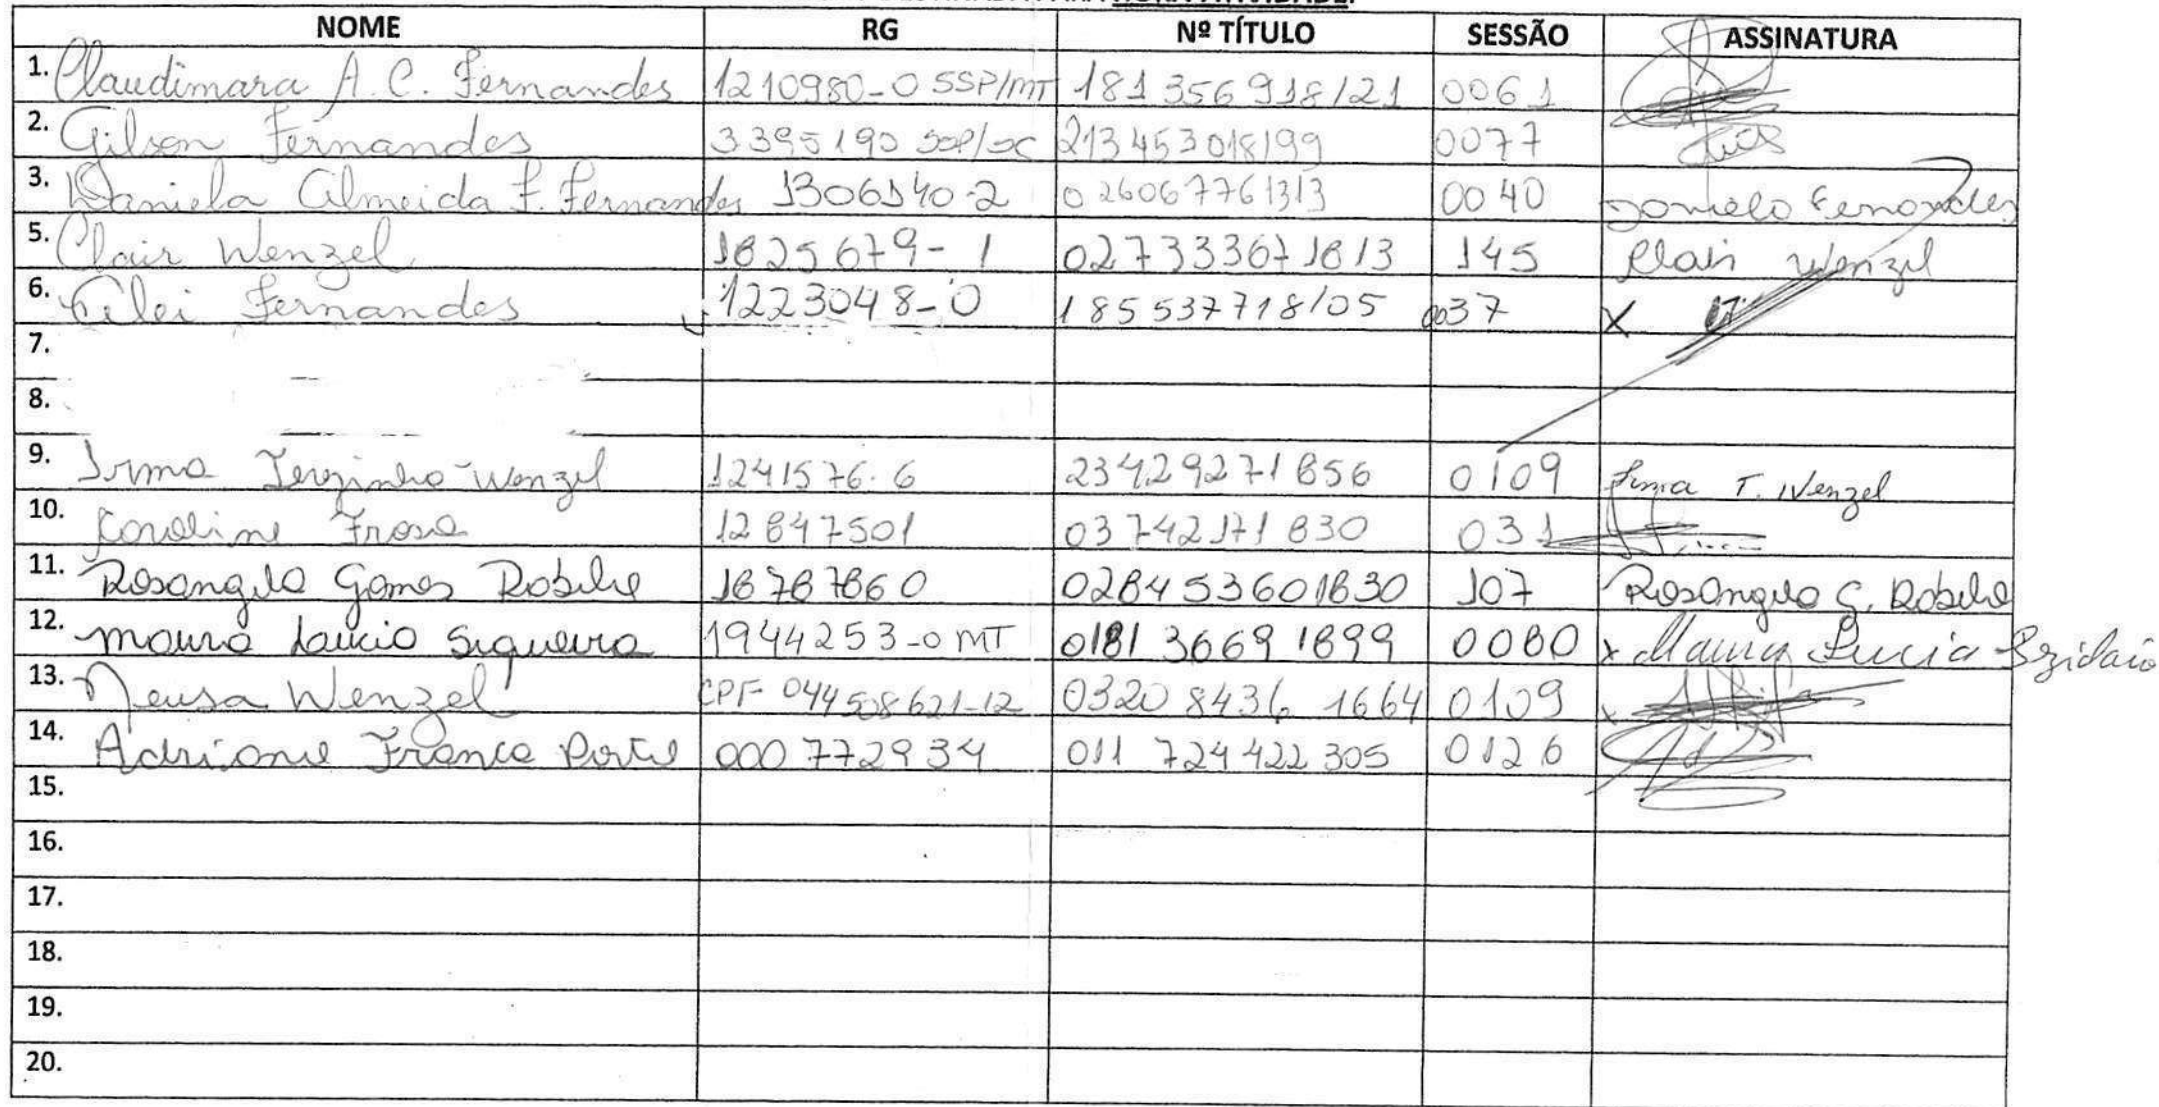 HORA ATIVIDADE.
NOME RG Nº TÍTULO SESSÃO ASSINATURA
1. Claudimara A. C. Fernandes 1210980-0 SSP/MT 181 356 918/21 0061
2. Gilson Fernandes 3395190 SSP/SC 213453018199 0077
3. Daniela Almeida F. Fernandes 1306140-2 026067761313 0040 Daniela Fernandes
5. Clair Wenzel 1825679-1 027333671813 145 Clair Wenzel
6. Fernandes 1223048-0 185537718/05 0037 X
7.
8.
9. Irma Terezinha Wenzel 1241576.6 23429271856 0109 Irma T. Wenzel
10. Karoline 12847501 037421718 30 031
11. Rosangela Gomes 18787860 028453601830 107 Rosangela G.
12. Maura Lucia Siqueira 1944253-0 MT 0181 3669 1899 0080 x Maura Lucia
13. Neusa Wenzel CPF 044508621-12 0320 8436 1664 0109 x
14. Adriane Franca 000772934 011 724422 305 0126
15.
16.
17.
18.
19.
20.